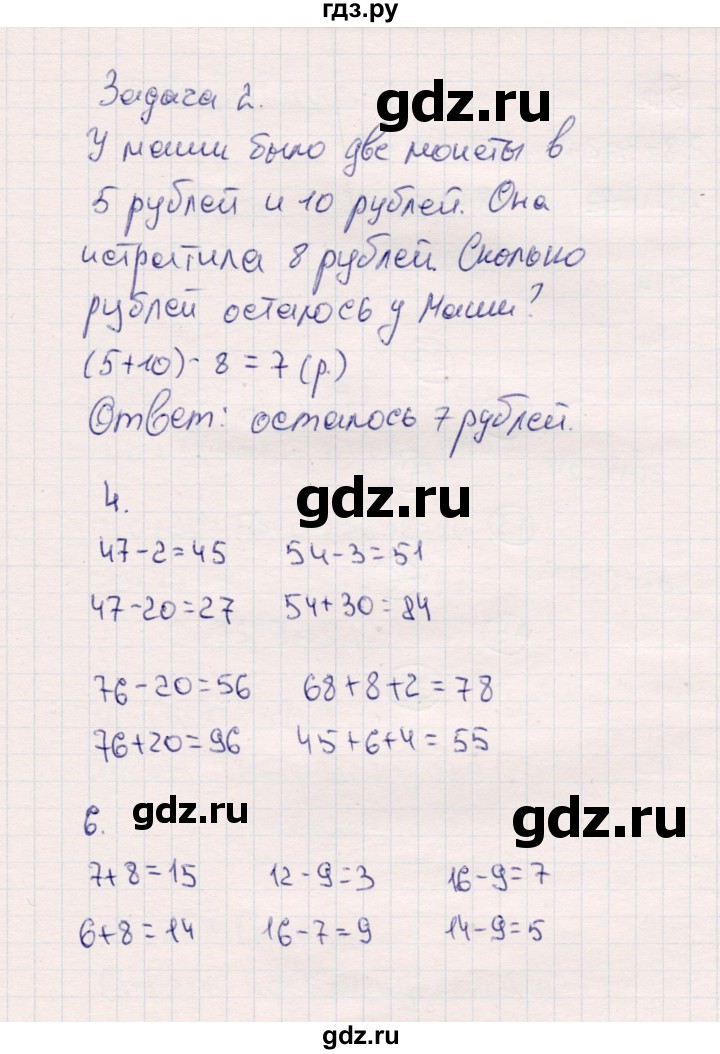 гдз.ру
Задача 2.
gdz.ru
У маши было две монеты в
5 рублей и 10 рублей. Она
истратила 8 рублей. Сколько
рублей осталось у Маши?
(5+10) - 8 = 7 (р.)
Ответ: осталось 7 рублей.
4.
gdz.ru
47-2=45 54-3=51
47-20=27 54+30=84
76-20=56 68+8+2=78
76+20=96 45+6+4=55
6.
gdz.ru
gdz.ru
7+8=15 12-9=3 16-9=7
6+8=14 16-7=9 14-9=5
gdz.ru